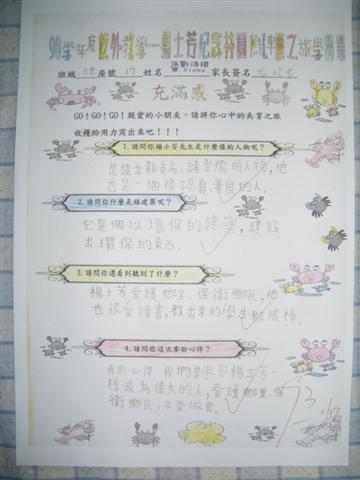 99學年度校外教學—楊士芳紀念林園
之旅學習單
班級 座號 17 姓名 家長簽名
充滿感
GO!GO!GO!親愛的小朋友,請將你心中的美育之旅
收穫給用力寫出來吧!!!
1.請問你楊士芳先生是什麼樣的人物呢?
讀聖儒的人物,他
也是一個很認真、善良的人。
2.請問你什麼是綠建築呢?
它是個以環保的建築,建設
出環保的東西。
3.請問你還看到聽到了什麼?
楊士芳愛護鄉里、保衛鄉民,他
也很愛讀書,教出來的學生都很棒。
4.請問你這次參訪心得?
我的心得:我們要學習楊士芳一
樣成為偉大的人,愛護鄉里、保
衛鄉民,不要做官。
93